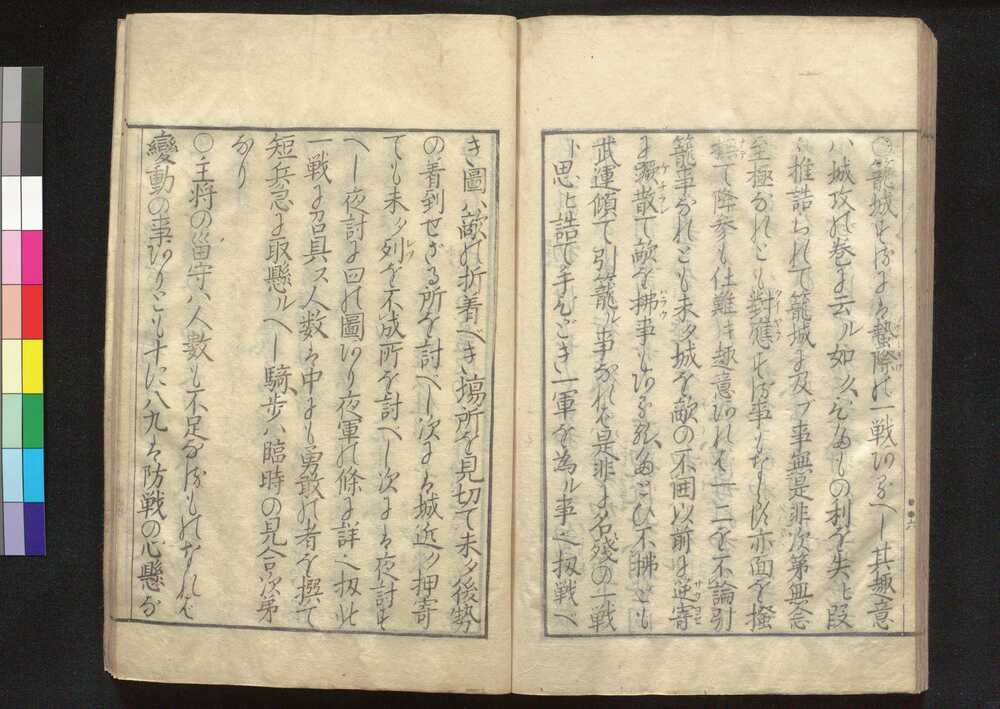 ○籠城するには蟄除の一戦有るへし其趣意
ハ城攻の巻に云ル如ク、そなもの利を失ヒ段
々推詰られて籠城に及フ事無是非次第無念
至極なれとも對應する事もならす以亦面を掻
て降参も仕難キ趣意あれは一二を不論引
籠事なれとも未タ城を敵の不囲以前に逆寄
に蹶散て敵を拂事もあるなりたとひ不拂とも
武運傾て引籠ル事なれは是非に名残の一戦
ト思ヒ詰て手ひどき一軍を為ル事也扨戦ヘ
き圖ハ敵の折着べき場所を見切て未タ後勢
の着到せざる所を討へし次には城近ク押寄
ても未タ列を不成所を討へし次には夜討す
へし夜討に四の圖あり夜軍の條に詳也扨此
一戦に召具ス人数は中にも勇敢の者を撰て
短兵急に取懸ルヘし騎歩ハ臨時の見合次第
なり
○主将の留守ハ人数も不足なるものなれば
變動の事ありとも十に八九は防戦の心懸な